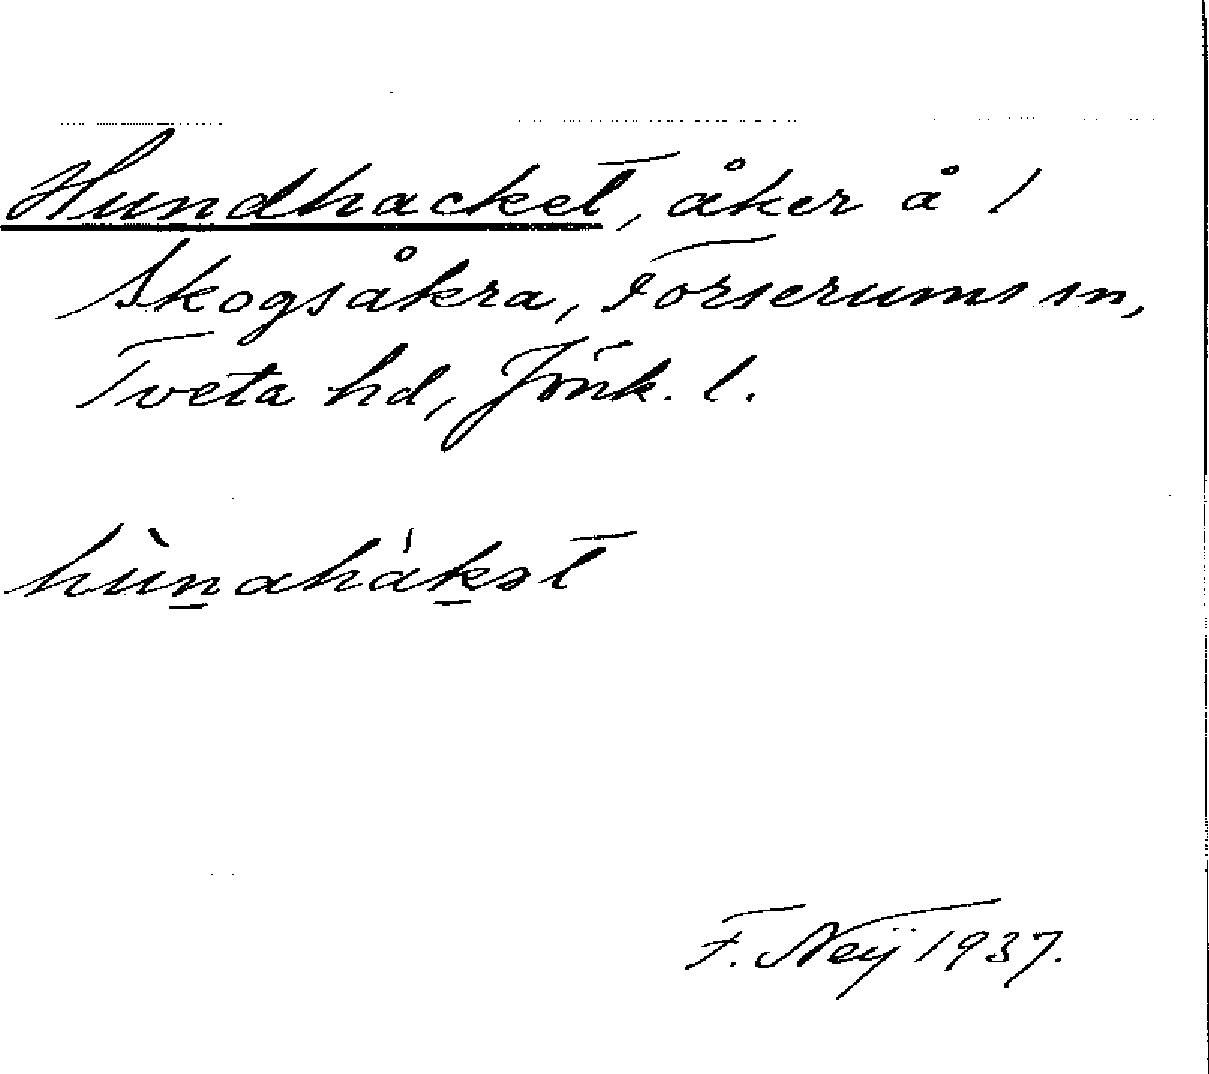 Hundhacket, åker å 1
Skogsåkra, Forserums sn,
Tveta hd, Jönk. l.
hùn̲ahák̲ət
F. Neij 1937.